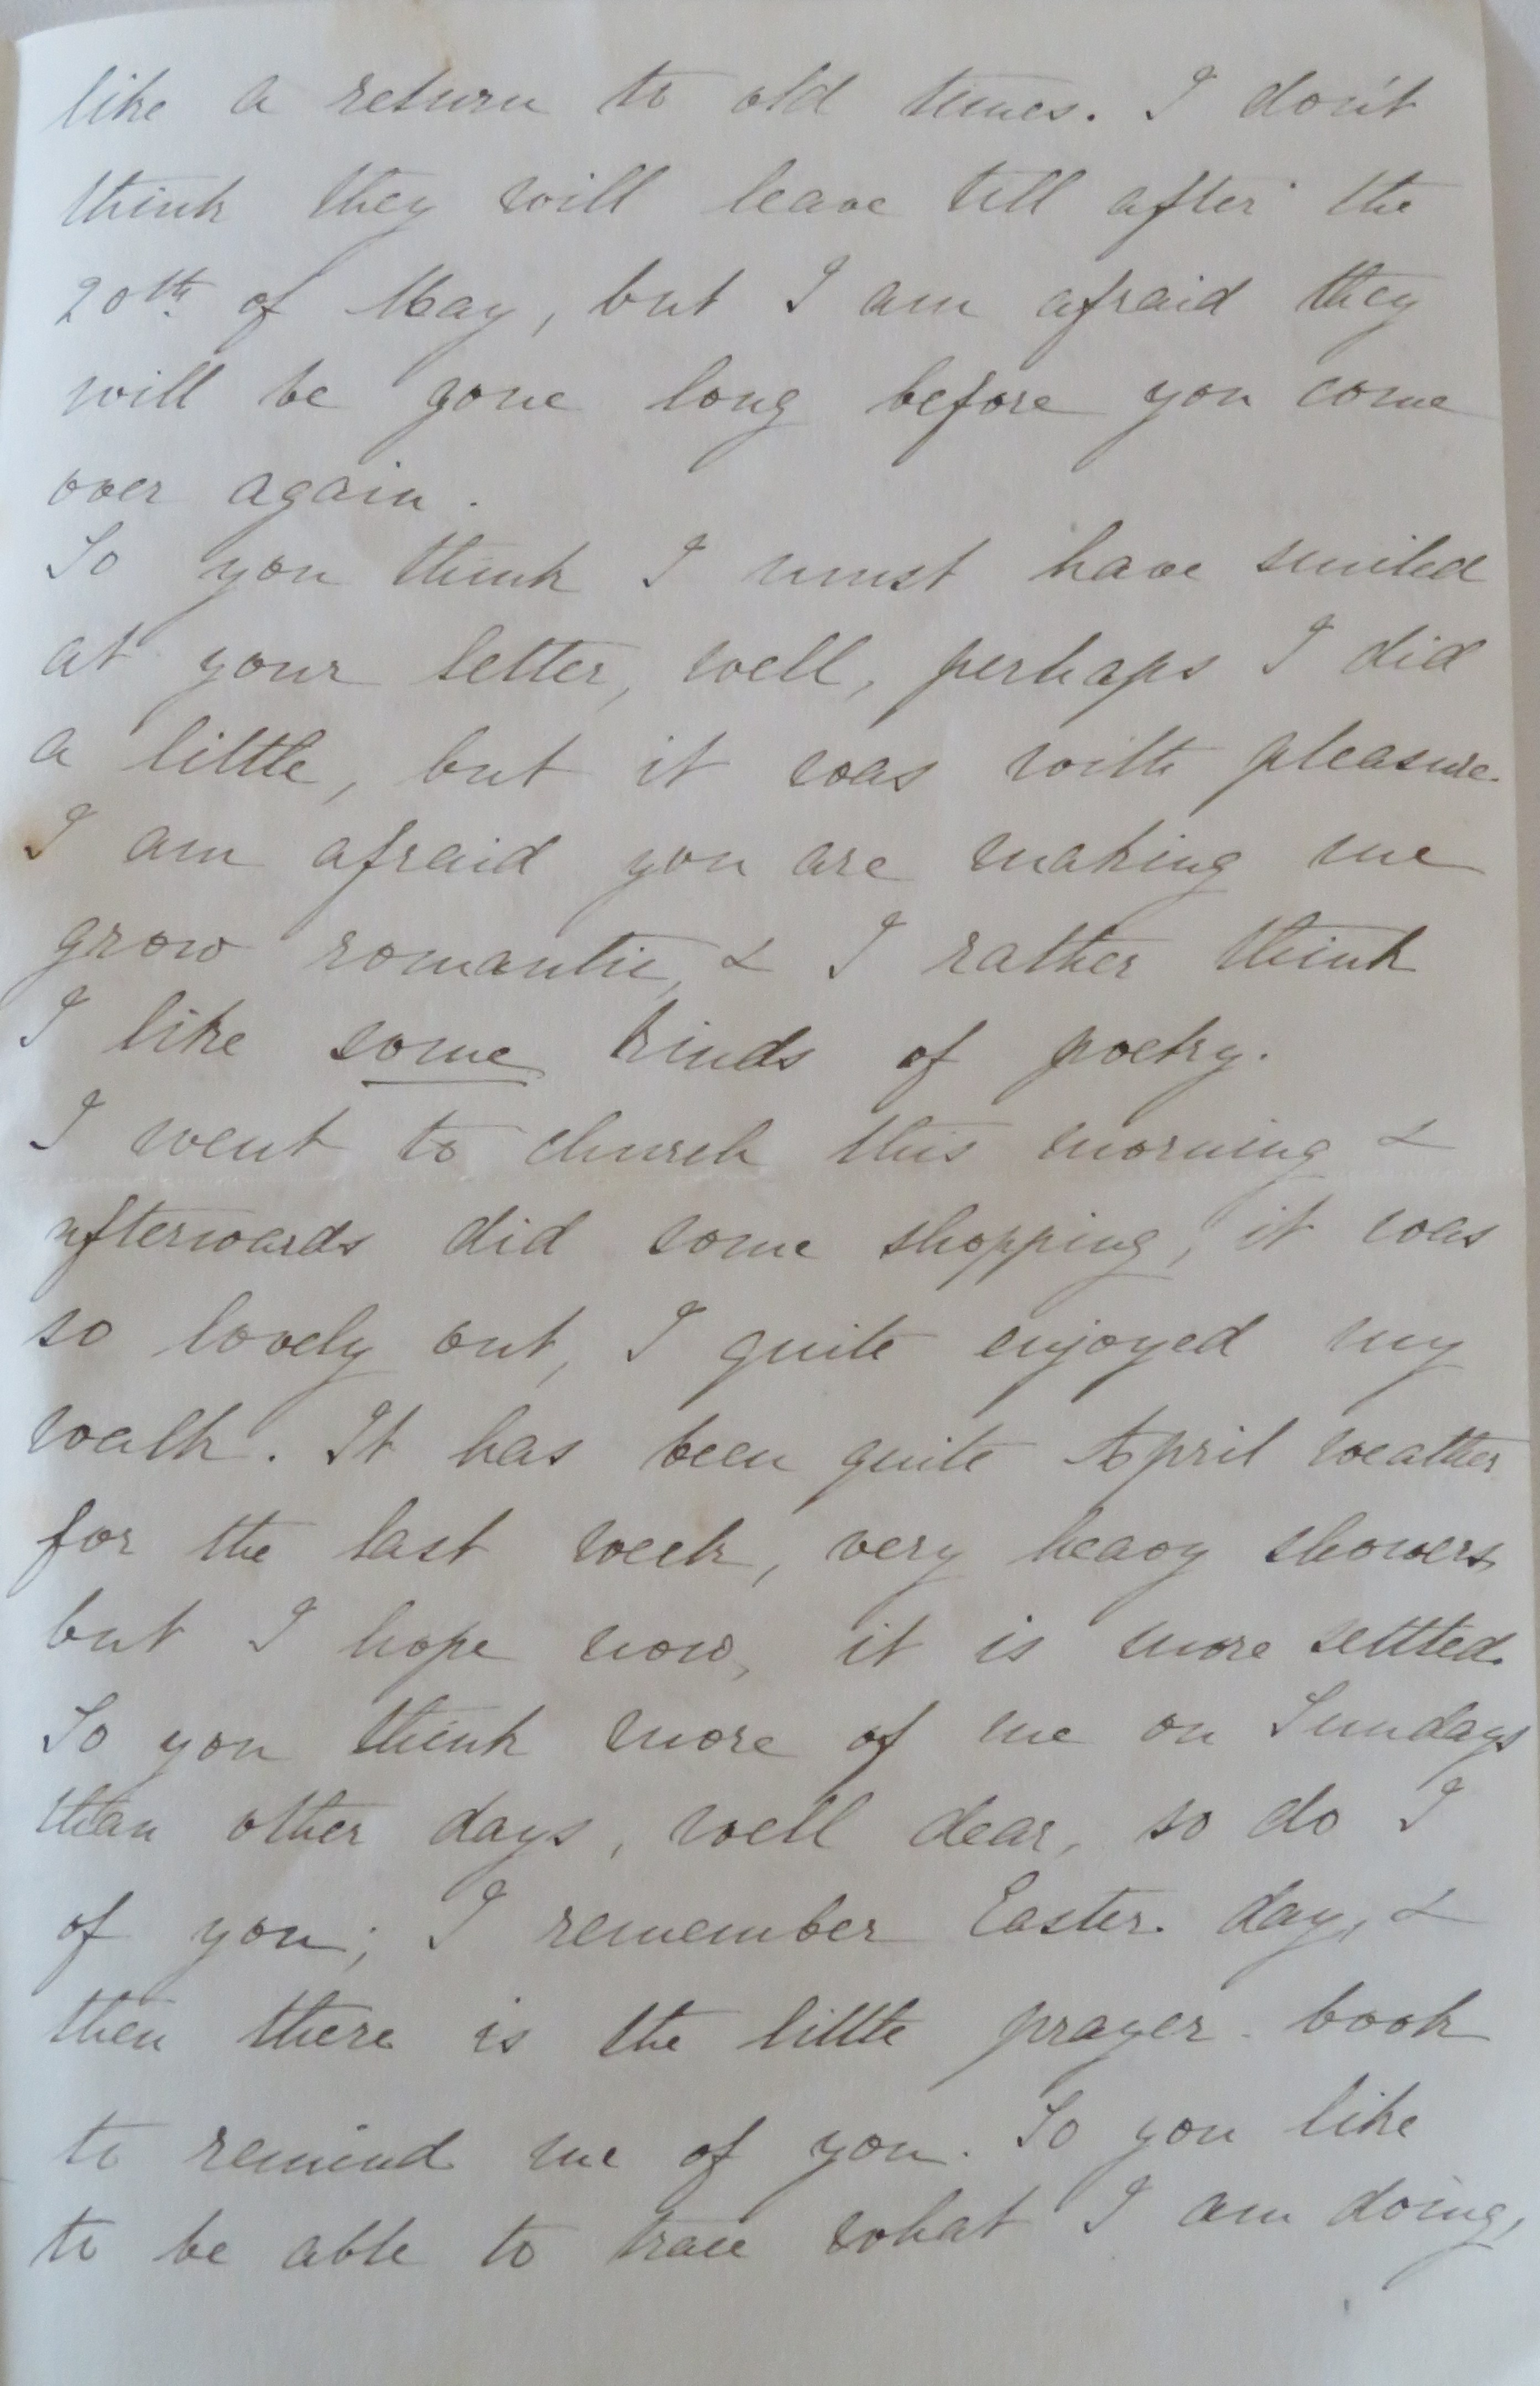 like a return to old times. I don't
think they will leave till after the
20th. of May, but I am afraid they
will be gone long before you come
over again.
So you think I must have smiled
at your letter, well, perhaps I did
a little, but it was with pleasure.
I am afraid you are making me
grow romantic, & I rather think
I like some kinds of poetry.
I went to church this morning &
afterwards did some shopping, it was
so lovely out, I quite enjoyed my
walk. It has been quite April weather
for the last week, very heavy showers,
but I hope now, it is more settled.
So you think more of me on Sundays
than other days, well dear, so do I
of you; I remember Easter. day, &
then there is the little prayer-book
to remind me of you. So you like
to be able to trace what I am doing,